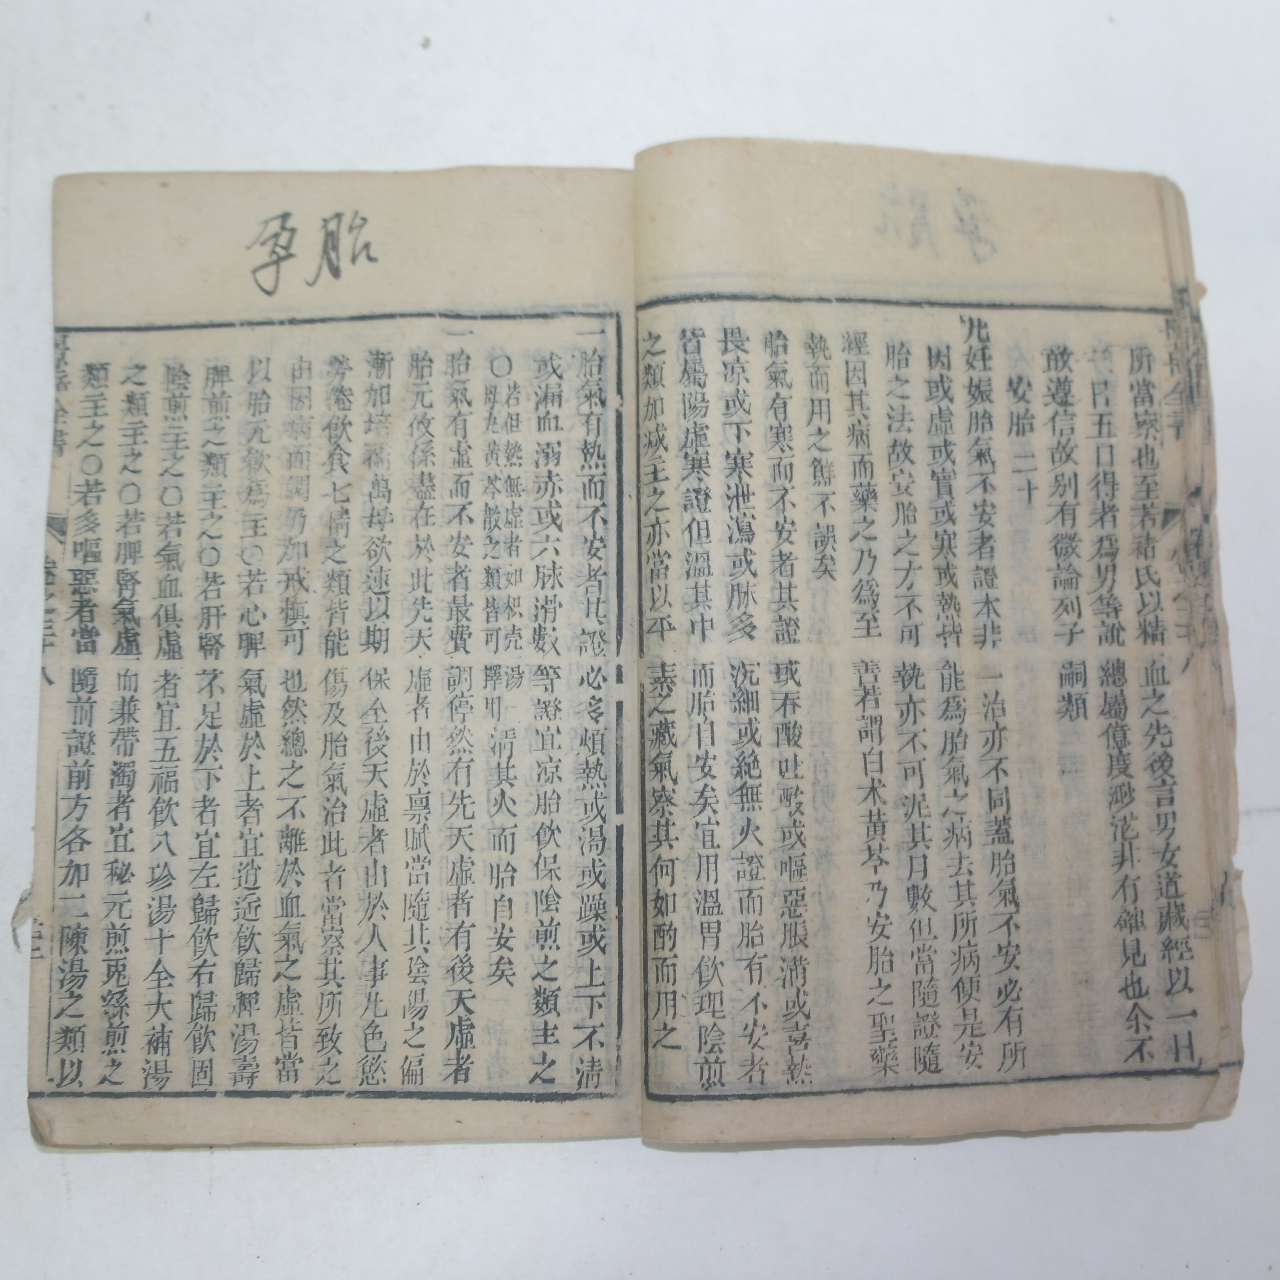 孕胎
所當察也至若褚氏以精血之先後言男女道藏經以一日
日五日得者爲男等說總屬億度渺茫非有確見也余不
敢遵信故別有微論列子嗣類
安胎二十
凡妊娠胎氣不安者證本非一治亦不同蓋胎氣不安必有所
因或虛或實或寒或熱皆能爲胎氣之病去其所病便是安
胎之法故安胎之方不可執亦不可泥其月數但當隨證隨
經因其病而藥之乃爲至善若謂白术黃芩乃安胎之聖藥
執而用之鮮不誤矣
胎氣有寒而不安者其證或吞酸吐酸或嘔惡脹滿或喜熱
畏凉或下寒泄瀉或脉多沉細或絕無火證而胎有不安者
皆屬陽虛寒證但溫其中而胎自安矣宜用溫胃飲理陰煎
之類加减主之亦當以平素之藏氣察其何如酌而用之
一胎氣有熱而不安者其證必多煩熱或渴或躁或上下不清
或漏血溺赤或六脉滑數等證宜凉胎飲保陰煎之類主之
〇若但熱無虛者如枳壳湯
丹黃芩散之類皆可擇用清其火而胎自安矣
一胎氣有虛而不安者最費調停然有先天虛者有後天虛者
胎元攸係盡在於此先天虛者由於禀賦當隨其陰陽之偏
漸加培補萬毋欲速以期保全後天虛者由於人事凡色慾
勞倦飲食七情之類皆能傷及胎氣治此者當察其所致之
由因病而調仍加戒慎可也然總之不離於血氣之虛皆當
以胎元飲爲主〇若心脾氣虛於上者宜逍遥飲歸脾湯壽
脾煎之類主之〇若肝腎不足於下者宜左歸飲右歸飲固
陰煎主之〇若氣血俱虛者宜五福飲八珍湯十全大補湯
之類主之〇若脾腎氣虛而兼帶濁者宜秘元煎兎絲煎之
類主之〇若多嘔惡者當隨前證前方各加二陳湯之類以
景岳全書 卷之三十八